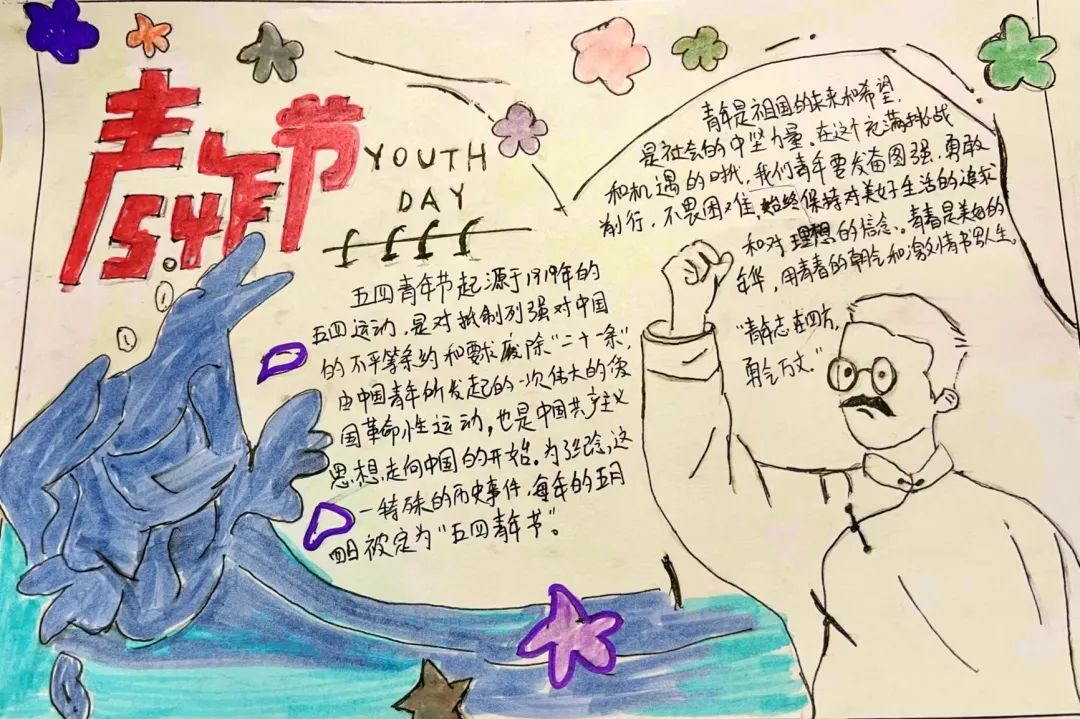 青年节
5.4
YOUTH
DAY
五四青年节起源于1919年的
五四运动，是对抵制列强对中国
的不平等条约和要求废除“二十一条”，
由中国青年所发起的一次伟大的爱
国革命性运动，也是中国共产主义
思想走向中国的开始。为纪念这
一特殊的历史事件，每年的五月
四日被定为“五四青年节”。
青年是祖国的未来和希望，
是社会的中坚力量。在这个充满挑战
和机遇的时代，我们青年要发奋图强，勇敢
前行，不畏困难，始终保持对美好生活的追求
和对理想的信念。青春是美好的
年华，用青春的朝气和激情书写人生。
“青年志在四方，
勇气万丈.”